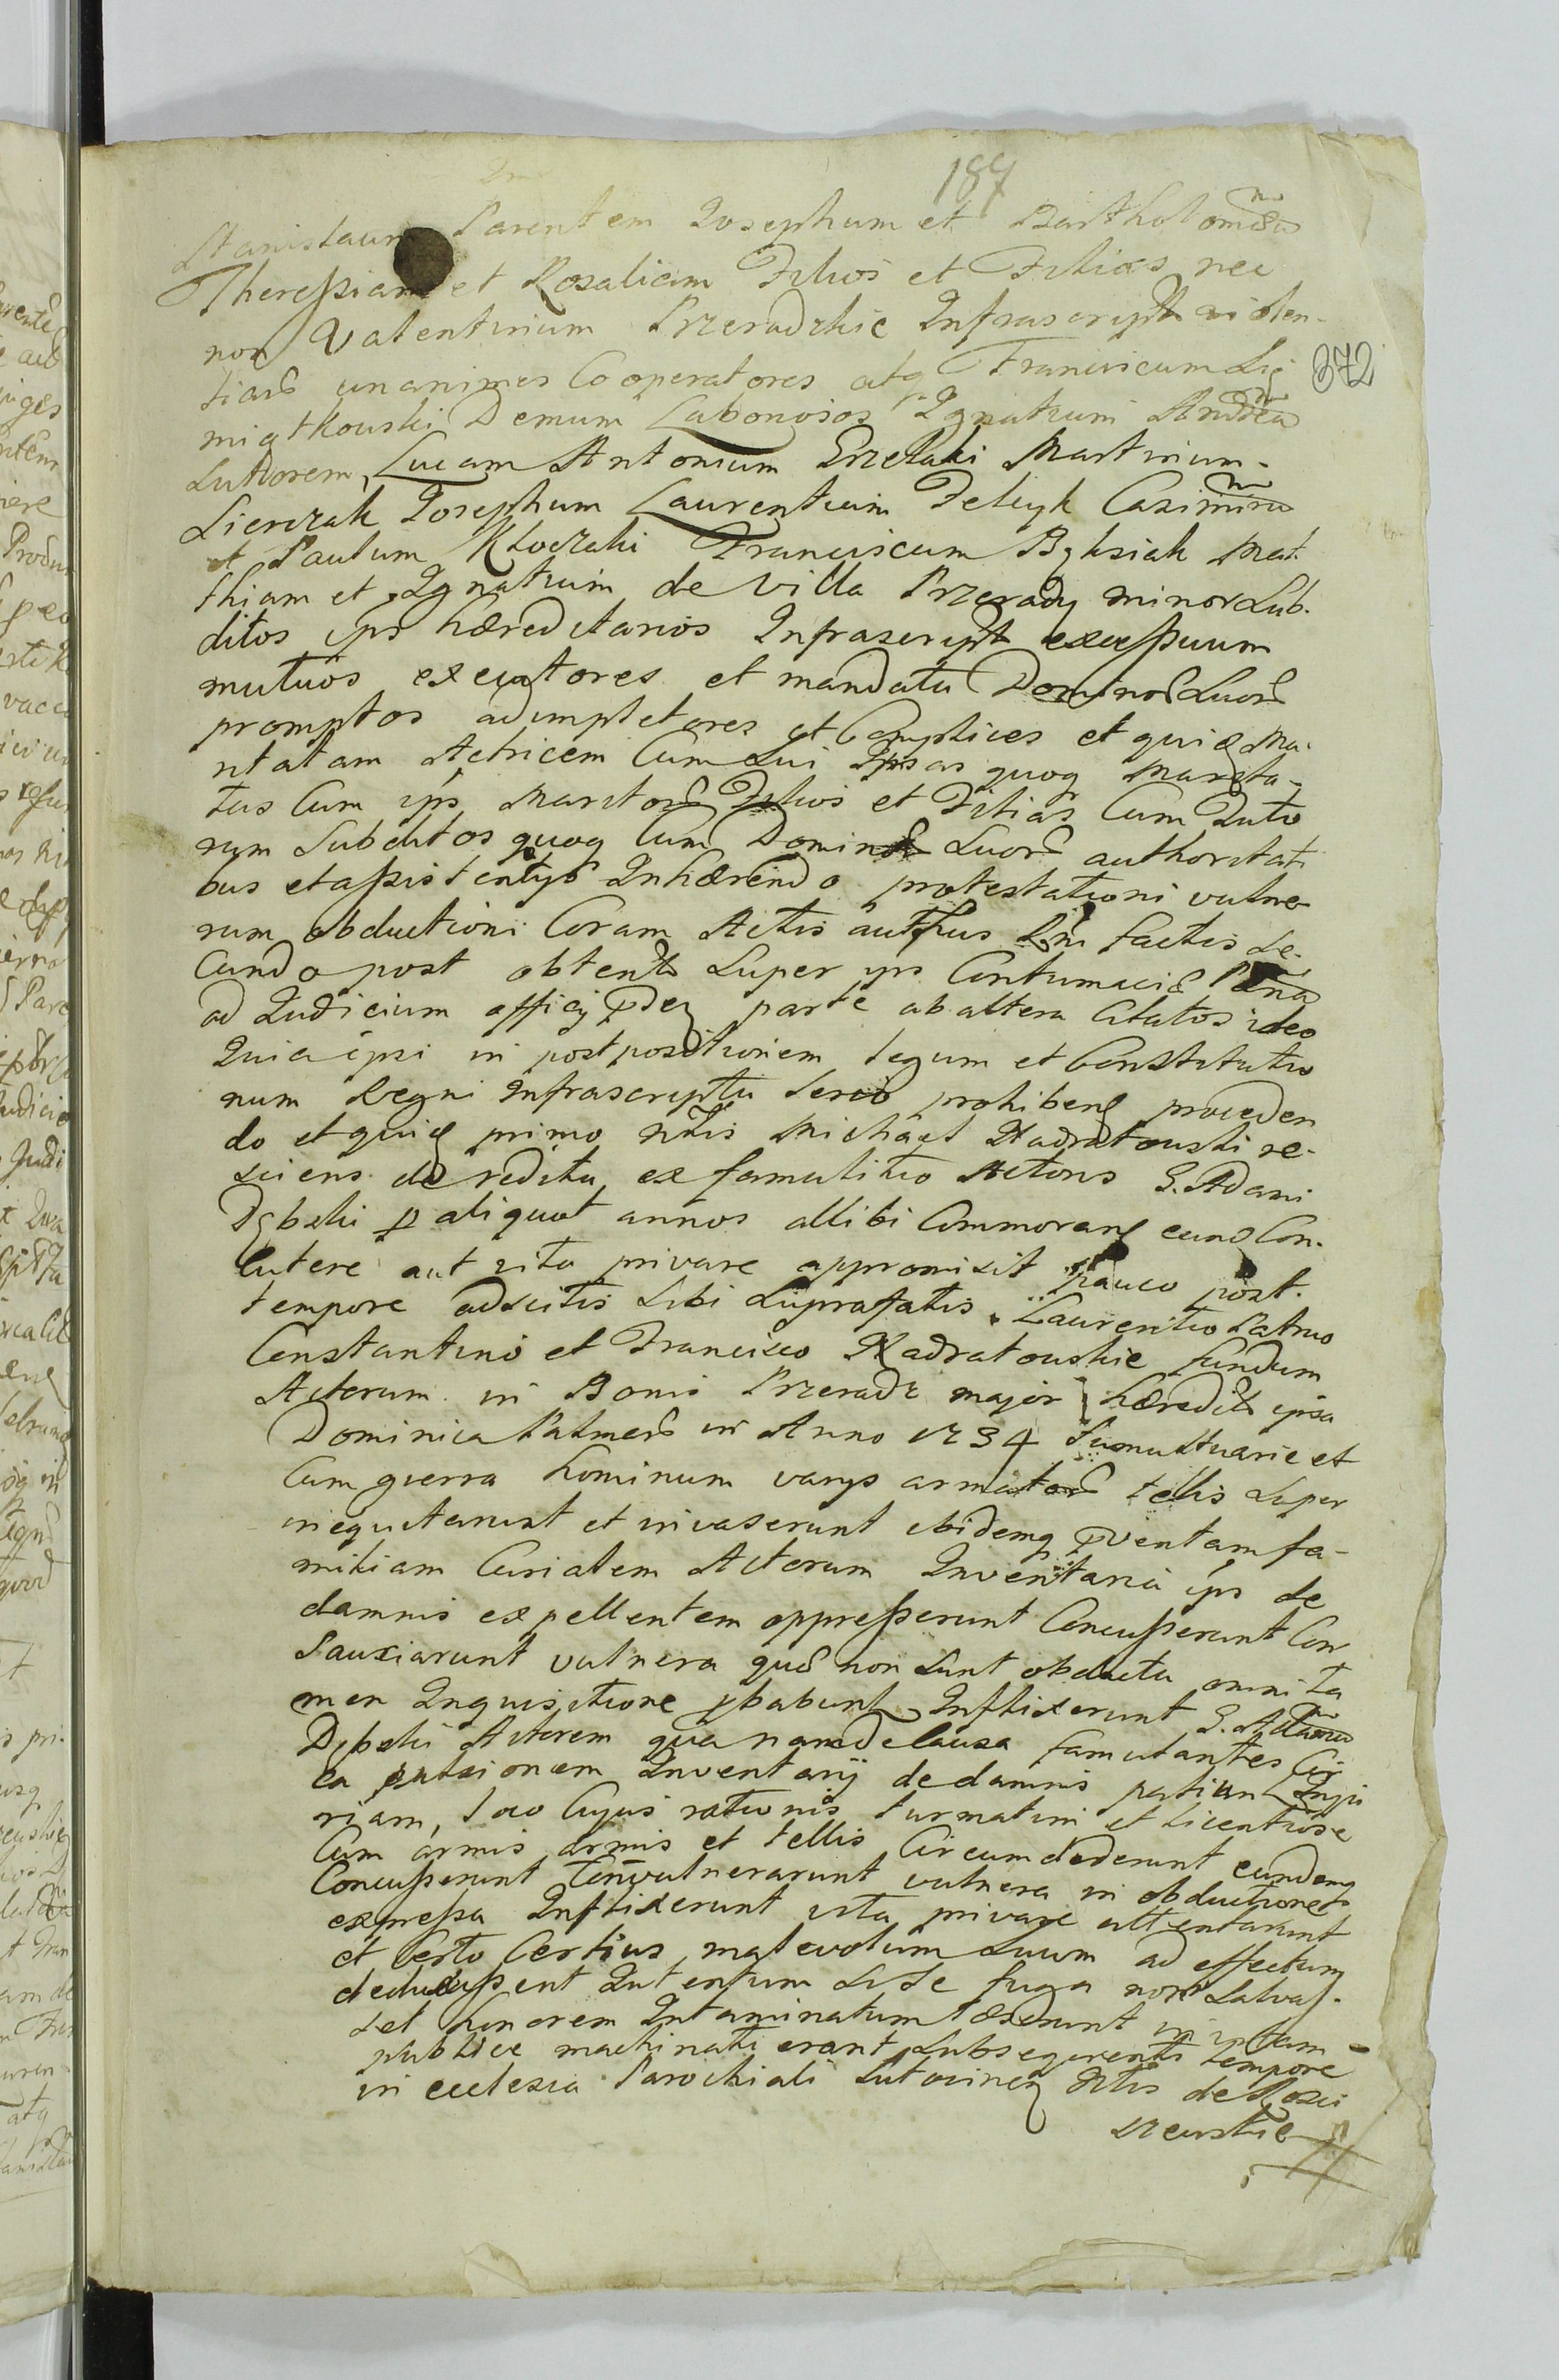 187
Stanislaum Parentem Josephum et Bartholomeu
Theressiam et Rosaliam Filios et Filias nec
non Valentinum Przeradzkie Infrascript violen-
tiar unanimes Cooperatores atq Franciscum Sie
372
miatkouski Demum Laboriosos Ignatium Andrea
Suttorem, Lucam Antonium Przetaki Martinum
Sierczak Josephum Laurentium Feliyk Casimiru
et Paulum Kloczki Franciscum Byksiak Mat
thiam et Ignatium de Villa Przerady minor Sub-
ditos ips hæreditarios Infrascript excessuum
mutuos executores et mandatu Dominor Suor
promptos adimpletores et Complices et quide Ma-
ritatam Actricem Cum Sui Ipsas quoq Marita-
tas Cum ips Maritor Filios et Filias Cum Tuto
rum Subditos quoq Cum Dominor Suor authoritati
bus et assistentys Inhærendo protestationi vulne
rum obductioni Coram Actis auth us factis Se-
cundo post obtent Super ips Contumacie Pæna
ad Judicium officij parte ab altera Citatos ideo
Quia ipsi in postpositionem legum et Constitutio
num Regni Infrascripta Serio prohiben proceden
do et quide primo Michael Nadratouski re-
sciens de reditu ex famulitio Actoris G. Adami
Dębski p aliquot annos allibi Commoran eund Con-
cutere aut vita privare appromisit pauco post
tempore adscitis Sibi Suprafatis Laurentio Patruo
Constantino et Francisco Nadratouskie fundum
Actorum in Bonis Przeradz major hæredit ipsa
Dominica Palmer in Anno 1734 tumultuarie et
Cum guerra hominum varys armator tellis Super
inequitarunt et invaserunt ibidemq pventam fa-
miliam Curialem Actorum Inventaria ips de
damnis expellentem oppresserunt Concusserunt Con
Sauciarunt vulnera que non Sunt obducta omni ta
men Inquisitione pbabunt Inflixerunt G. Adamu
Dębski Actorem qua namde causa famulantes Cir
ca pulsionem Inventarij de damnis patiunt Inju
riam, loco Cujus rationis turmatim et licentiose
Cum armis armis et tellis Circumdederunt eundemq
Concusserunt Convulnerarunt vulnera in obductione
expressa Inflixerunt vita privare attentarunt
et Certo Certius malevolum Suum ad effectum
deduxissent Intentum Si Se fuga non Salvas-
set honorem Intaminatum læderunt vitam
publice machinati erant Subsequenti tempore
in ecclesia Parochiali Lutocinen de Rosci
szeuskie